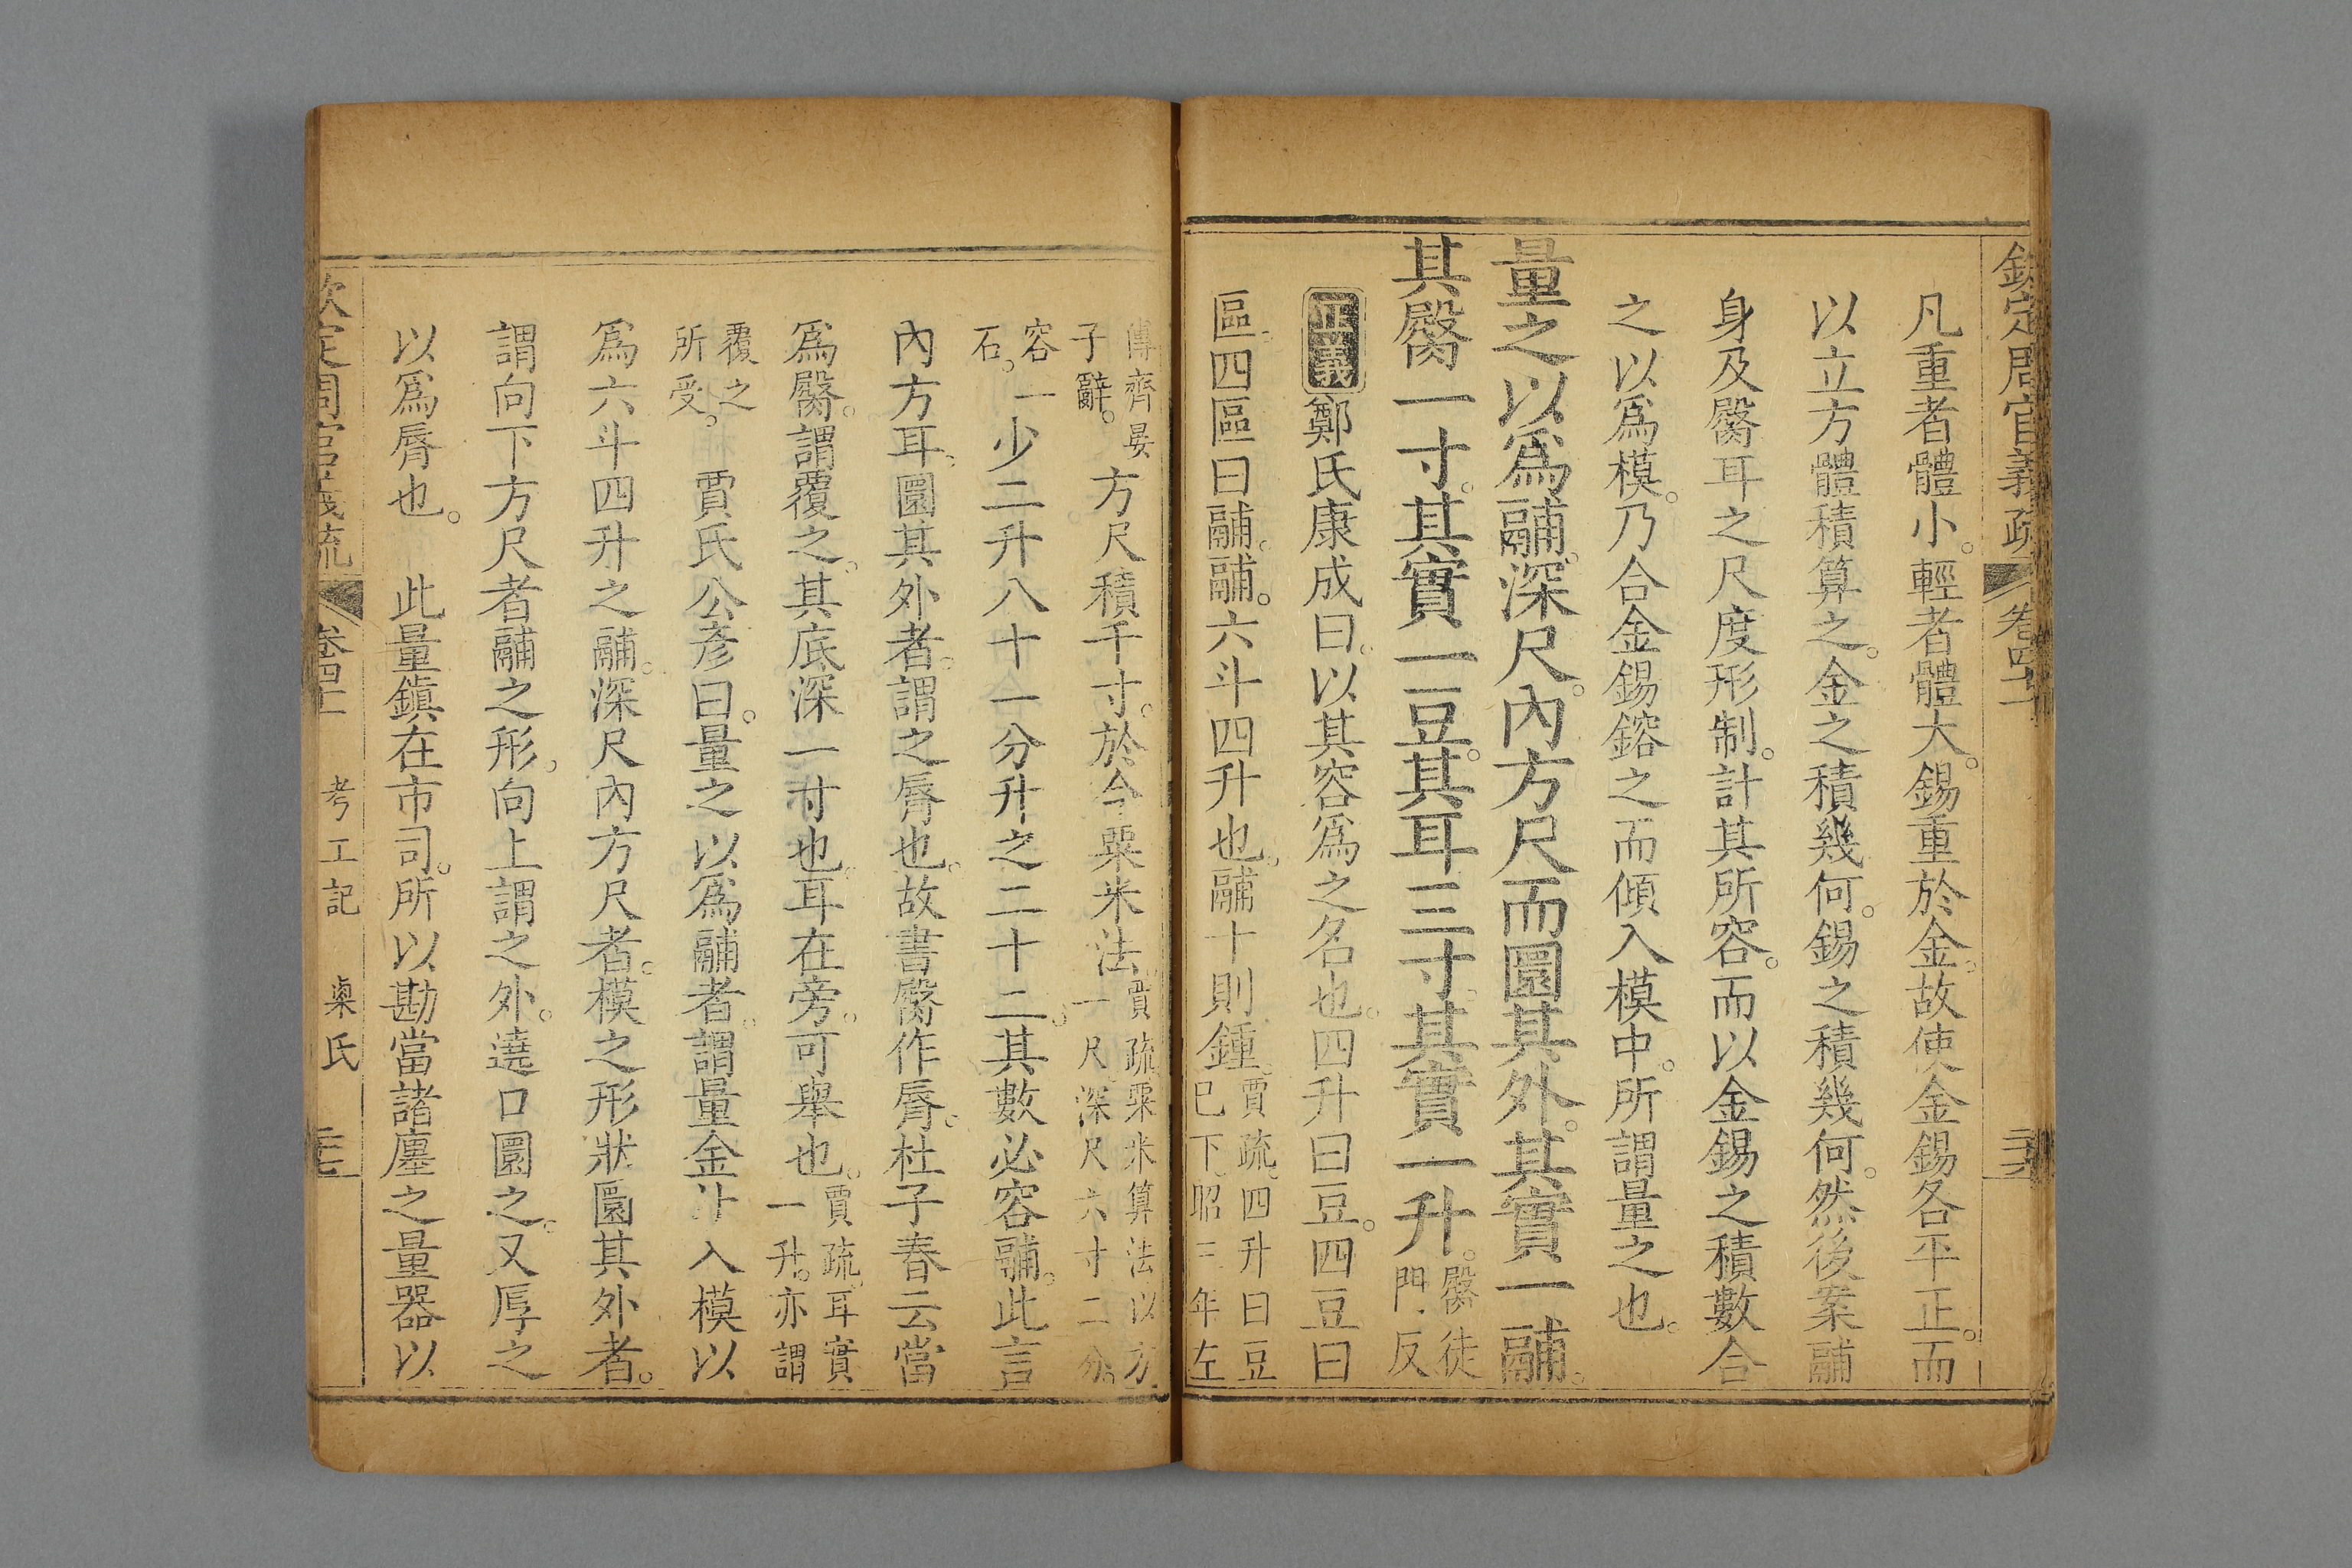 欽定周官義疏 卷四十一 二十六
凡重者體小。輕者體大。錫重於金。故使金錫各平正。而
以立方體積算之。金之積幾何。錫之積幾何。然後案鬴
身及臋耳之尺度形制。計其所容。而以金錫之積數合
之以爲模。乃合金錫鎔之而傾入模中。所謂量之也。
量之以爲鬴。深尺。內方尺而圜其外。其實一鬴。
其臋一寸。其實一豆。其耳三寸。其實一升。臋徒
門反
正義 鄭氏康成曰。以其容爲之名也。四升曰豆。四豆曰
區。四區曰鬴。鬴。六斗四升也。鬴十則鍾。賈疏。四升曰豆
巳下。昭三年左
傳齊晏
子辭。方尺積千寸。於今粟米法。賈疏。粟米算法。以方
一尺。深尺六寸二分。
容一
石。少二升八十一分升之二十二。其數必容鬴。此言
內方耳。圜其外者。謂之脣也。故書臋作脣。杜子春云。當
爲臋。謂覆之。其底深一寸也。耳在旁。可舉也。賈疏。耳實
一升。亦謂
覆之
所受。 賈氏公彥曰。量之以爲鬴者。謂量金汁入模以
爲六斗四升之鬴。深尺內方尺者。模之形狀。圜其外者。
謂向下方尺者鬴之形。向上謂之外。遶口圜之。又厚之
以爲脣也。 此量鎭在市司。所以勘當諸廛之量器以
欽定周官義疏 卷四十一 考工記 㮚氏 二十七